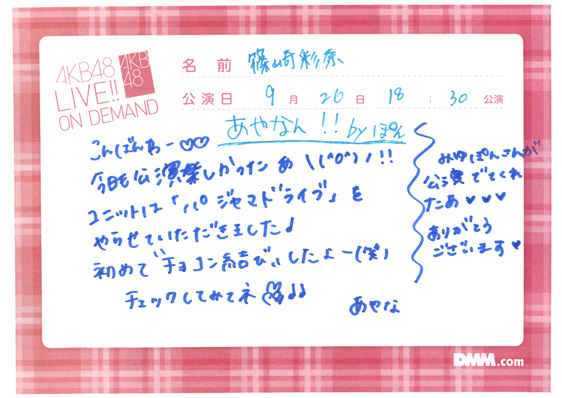 AKB48
LIVE!!
ON DEMAND
AKB
48
名前 篠崎彩奈
公演日 9月26日 18:30公演
あやなん!! by ぽん
こんばんわー♡♡
今日も公演楽しかったぁ\(^o^)/!!
ユニットは「パジャマドライブ」を
やらせていただきました♪
初めて“チョコン結び”したよー(笑)
チェックしてみてネ♪♪
あやな
みゆぽんさんが
公演でてくれ
たあ♥♥♥
ありがとう
ございます♥
DMM.com